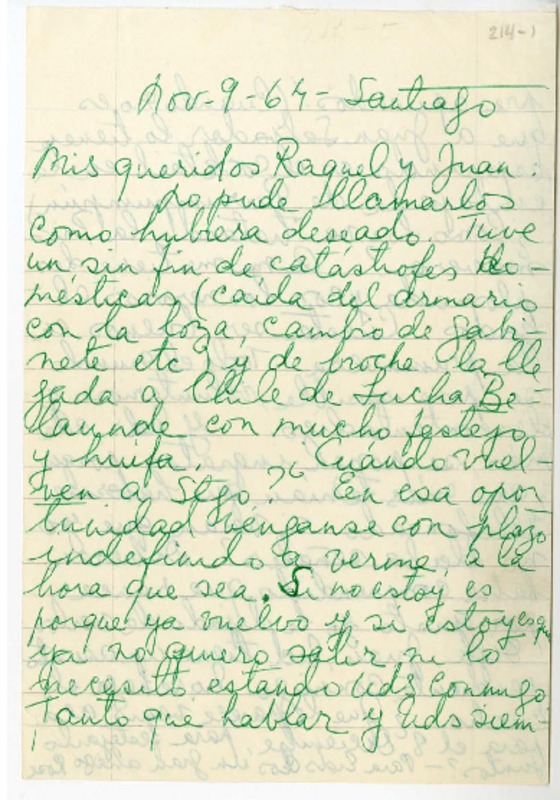 214-1
Nov-9-64- Santiago
Mis queridos Raquel y Juan:
No pude llamarlos
como hubiera deseado. Tuve
un sin fin de catástrofes do-
mésticas (caída del armario
con la loza, cambio de gabi-
nete etc) y de broche la lle
gada a Chile de Lucha Be-
launde con mucho festejo
y huifa. ¿Cuándo vuel-
ven a Stgo? En esa opor-
tunidad vénganse con plazo
indefinido a verme a la
hora que sea. Si no estoy es
porque ya vuelvo y si estoy es q
ya no quiero salir ni lo
necesito estando Uds conmigo
¡Tanto que hablar y Uds siem-